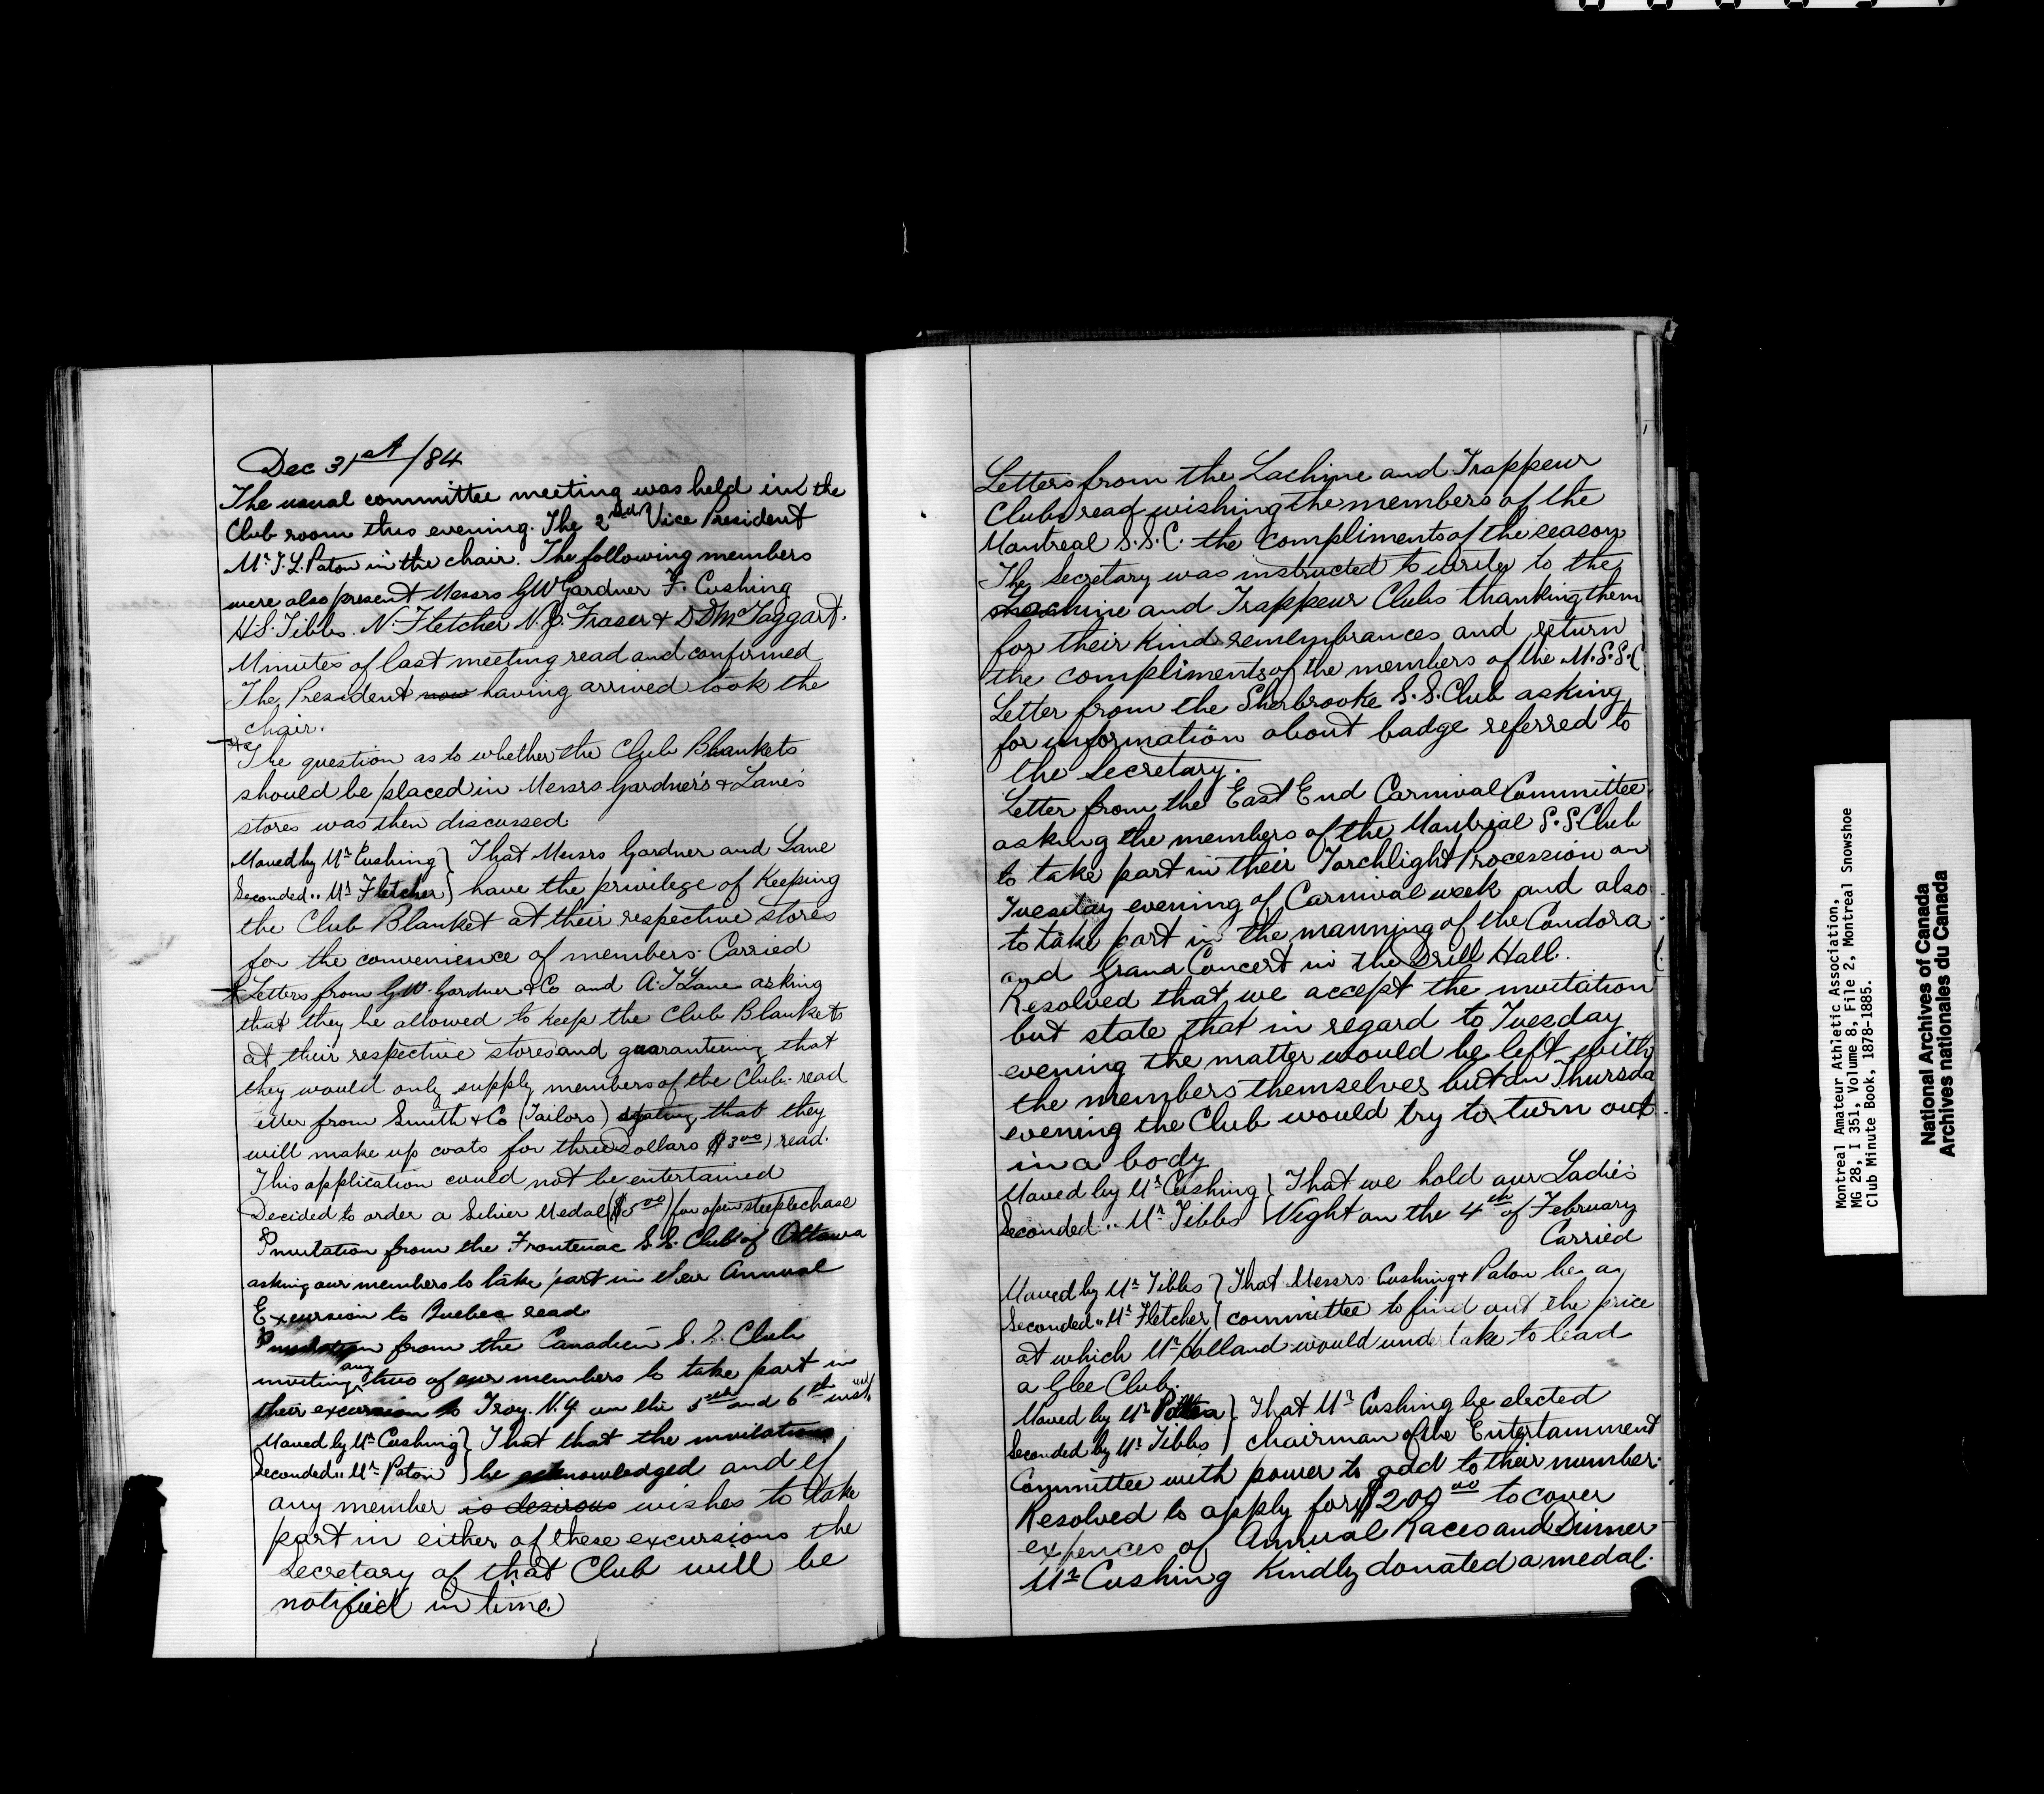 Dec 31st/84
The usual committee meeting was held in the
Club room this evening. The 2nd Vice President
Mr. T. L. Paton in the chair. The following members
were also present Messrs G W Gardner F. Cushing
H.S. Tibbs. N. Fletcher N. P. Fraser & D D McTaggart.
Minutes of last meeting read and confirmed
The President now having arrived took the
chair.
The question as to whether the Club Blankets
should be placed in Messrs Gardner's & Lane's
stores was then discussed.
Moved by Mr Cushing } That Messrs Gardner and Lane
Seconded " Mr Fletcher } have the privilege of Keeping
the Club Blanket at their respective stores
for the convenience of members. Carried
Letters from G.W. Gardner & Co and A. T Lane asking
that they be allowed to keep the Club Blankets
at their respective stores and guaranteeing that
they would only supply members of the Club. read
etter from Smith & Co (Tailors) stating that they
will make up coats for three dollars $3.00) read.
This application could not be entertained
Decided to order a Silver Medal ($5.00) for open steeplechase
Invitation from the Frontenac S.S. Club of Ottawa
asking our members to take part in their Annual
Excursion to Quebec read
Invitation from the Canadien S. S. Club
inviting any two of our members to take part in
their excursion to Troy. N.Y. on the 5th and 6th inst
Moved by Mr Cushing } That that the invitations
Seconded " Mr Paton } be acknowledged and if
any member is desirous wishes to take
part in either of these excursions the
Secretary of that Club will be
notified in time.
Letters from the Lachine and Trappeur
Clubs read wishing the members of the
Montreal S.S.C. the compliments of the season
The Secretary was instructed to write to the
Lachine and Trappeur Clubs thanking them
for their kind remembrances and return
the compliments of the members of the M.S.S.C
Letter from the Sherbrooke S.S. Club asking
for information about badge referred to
the Secretary.
Letter from the East End Carnival Committee
asking the members of the Montreal S.S Club
to take part in their Torchlight Procession on
Tuesday evening of Carnival week and also
to take part in the manning of the Condora
and Grand Concert in the Drill Hall.
Resolved that we accept the invitation
but state that in regard to Tuesday
evening the matter would be left with
the members themselves but on Thursda
evening the Club would try to turn out
in a body
Moved by Mr Cushing } That we hold our Ladies
Seconded " Mr Tibbs } Night on the 4th of February
Carried
Moved by Mr Tibbs } That Messrs. Cushing & Paton be a
Seconded " Mr Fletcher } committee to find out the price
at which Mr Holland would undertake to lead
a Glee Club.
Moved by Mr Paton } That Mr Cushing be elected
Seconded by Mr Tibbs } chairman of the Entertainment
Committee with power to add to their number.
Resolved to apply for $200.00 to cover
expences of Annual Races and Dinner
Mr Cushing Kindly donated a medal.
Montreal Amateur Athletic Association,
MG 28, I 351, Volume 8, File 2, Montreal Snowshoe
Club Minute Book, 1878-1885.
National Archives of Canada
Archives nationales du Canada